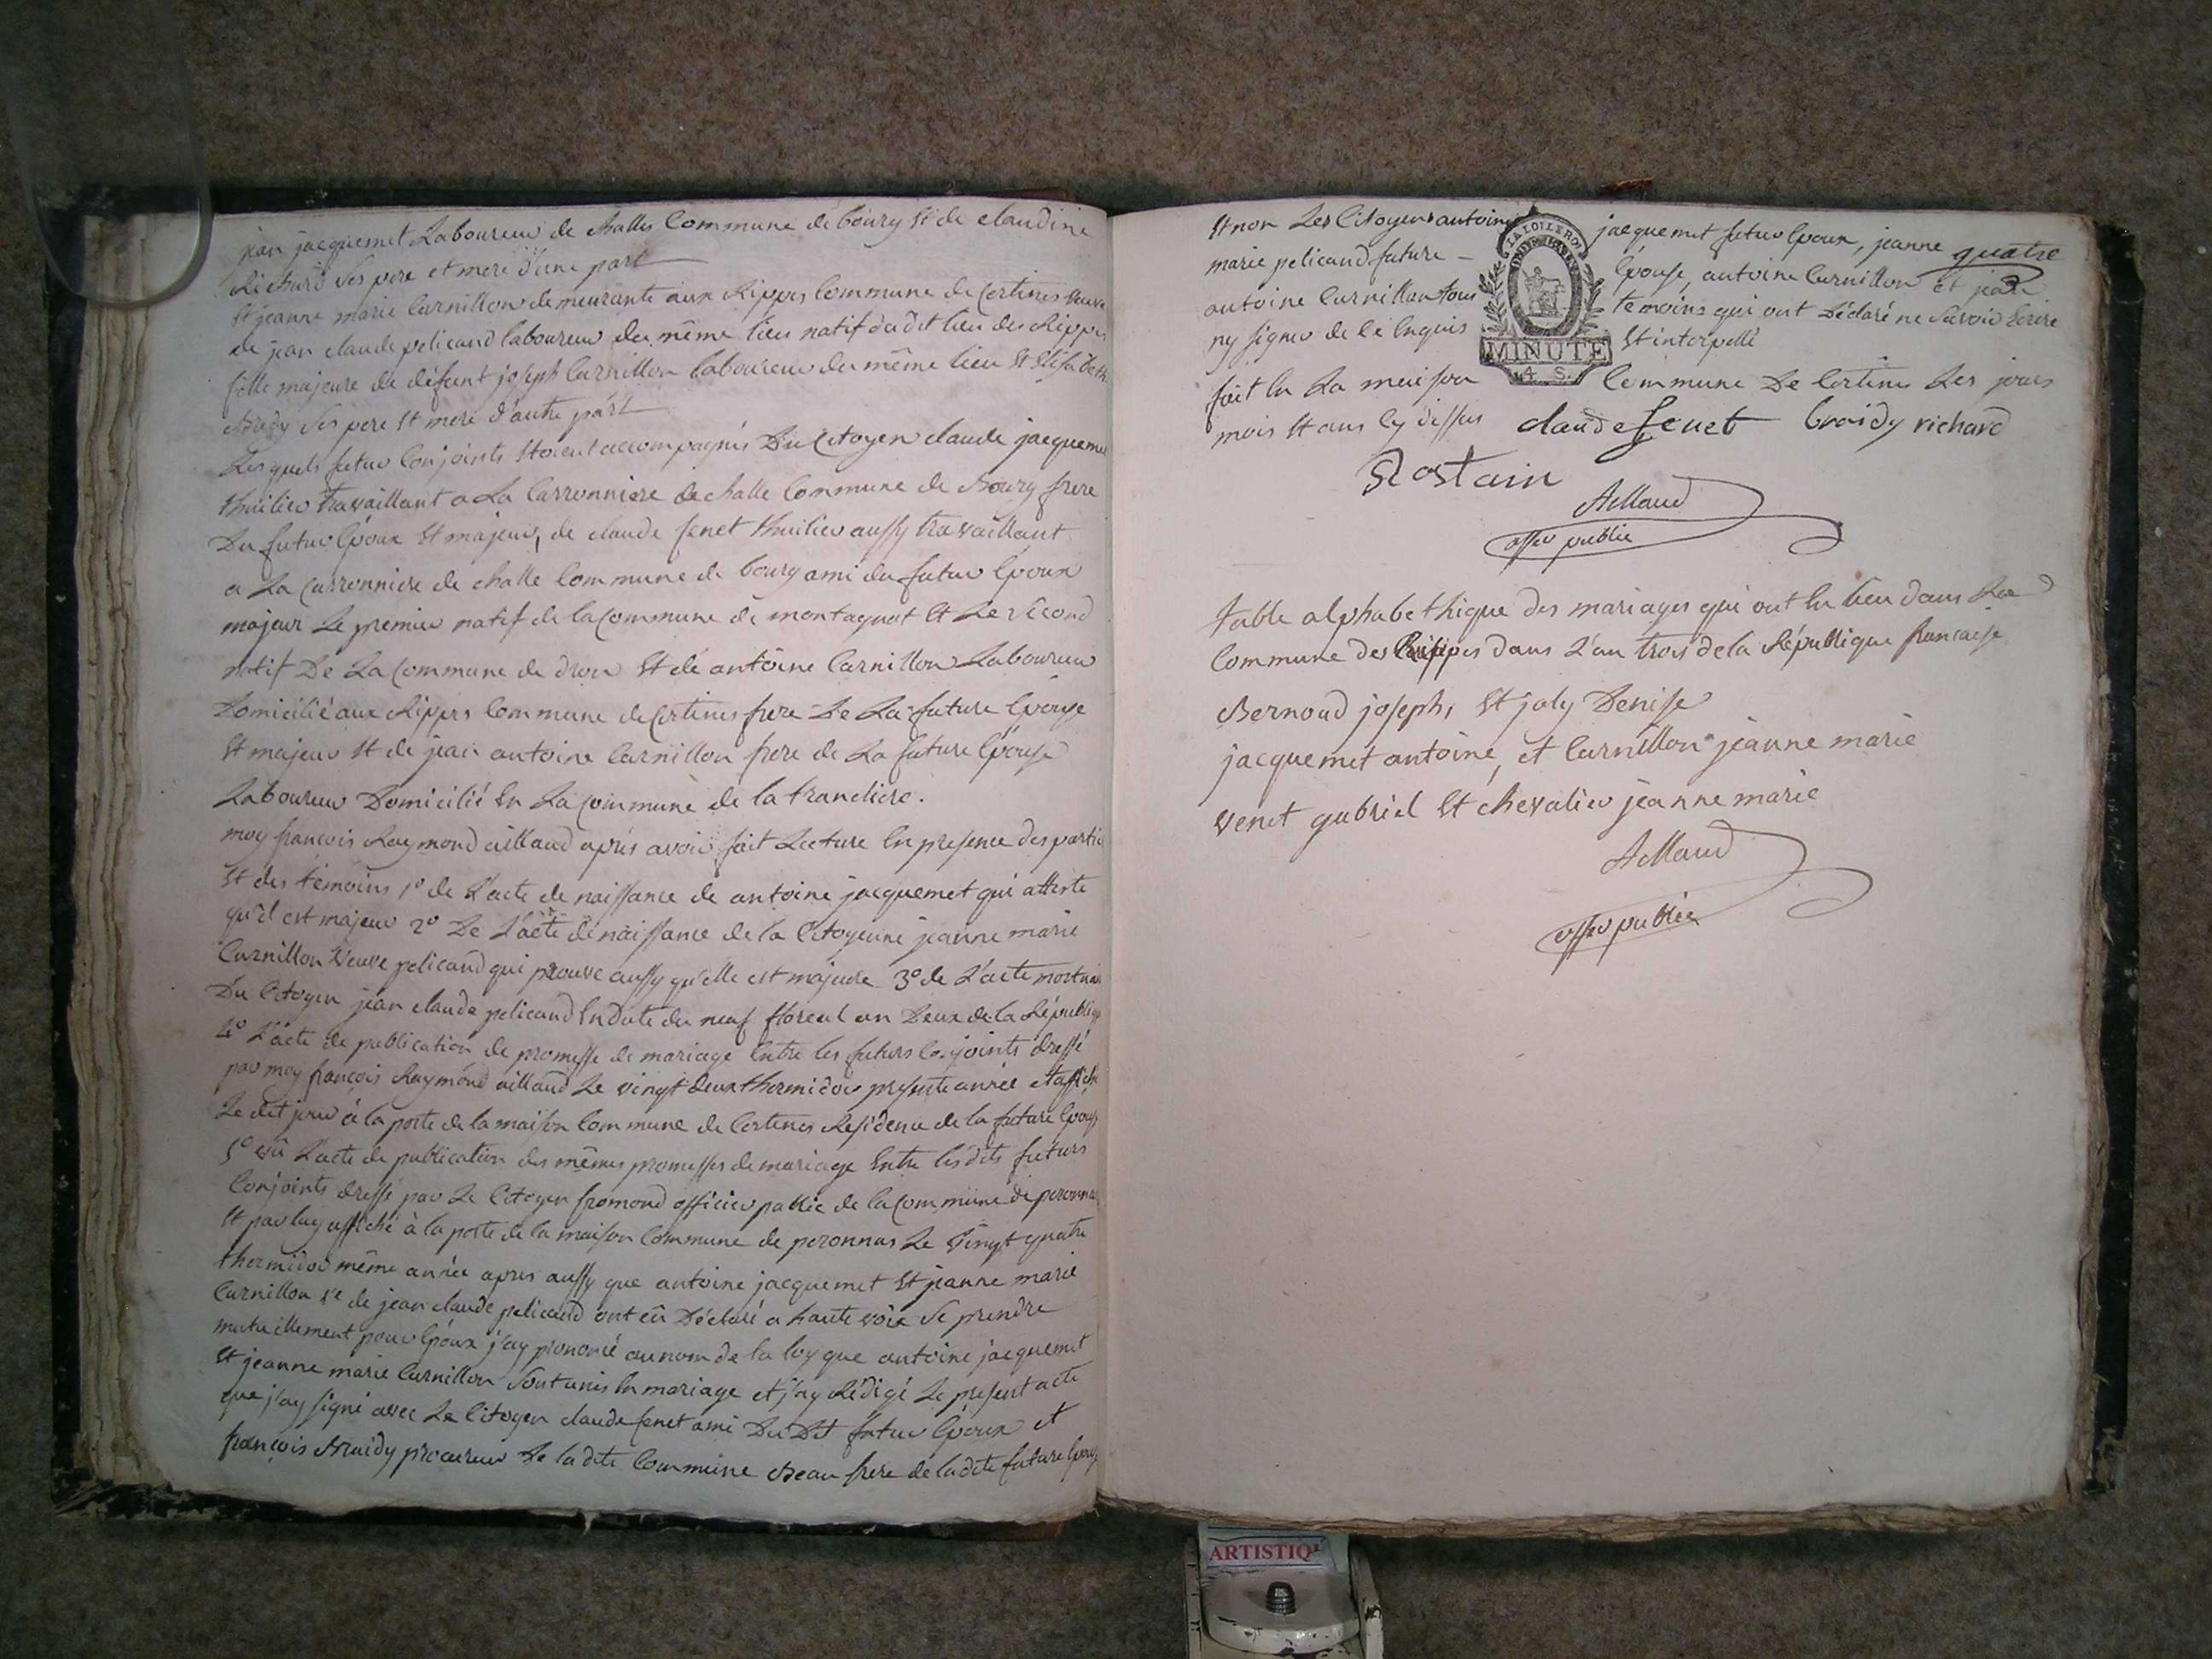 jean jacquemet Laboureur de challes Commune de bourg et de claudine
Richard ses pere et mere d'une part
et jeanne marie Curnillon demeurante aux Rippes Commune de Certines veuve
de jean claude pelicand laboureur du même lieu natif du dit lieu des Rippes
fille majeure de défunt joseph Curnillon laboureur du même lieu et Elisabeth
Bredy ses pere et mere d'autre part
Lesquels futur Conjoints etoient accompagnés Du Citoyen claude jacquemet
thuilier travaillant a La Carronniere de challe Commune de Bourg frere
Du futur Epoux et majeur, de claude fenet thuilier aussy travaillant
a La Carronniere de challe Commune de bourg ami du futur Epoux
majeur Le premier natif de la Commune de montagnat et Le second
natif De La Commune de drou et de antoine Curnillon Laboureur
Domicilié aux Rippes Commune de Certines frere De La future Epouse
et majeur et de jean antoine Curnillon frere de La future Epouse
Laboureur Domicilié En La Commune de la tranclière.
moy françois Raymond aillaud après avoir fait Lecture En presence des partie
et des témoins 1º de L'acte de naissance de antoine jacquemet qui atteste
qu'il est majeur 2º De L'acte de naissance de la Citoyenne jeanne marie
Curnillon veuve pelicand qui prouve aussy qu'elle est majeure 3º de L'acte mortuai
Du Citoyen jean claude pelicand En date du neuf floreal an Deux de la Républiqu
4º L'acte de publication de promesse de mariage Entre les futurs Conjoints dressé
par moy françois Raymond aillaud Le vingt deux thermidor presente année et affiché
Le dit jour à la porte de la maison Commune de Certines Residence de la future Epouse
5º vû L'acte de publication des mêmes promesses de mariage Entre les dits futurs
Conjoints dressé par Le Citoyen fromond officier public de la Commune de peronnas
et par luy affiché à la porte de la maison Commune de peronnas Le vingt quatre
thermidor même année apres aussy que antoine jacquemet et jeanne marie
Curnillon ve de jean claude pelicand ont eû Déclaré a haute voix se prendre
mutuellement pour Epoux j'ay prononcé au nom de la loy que antoine jacquemet
et jeanne marie Curnillon sont unis En mariage et j'ay Rédigé Le present acte
que j'ay signé avec Le Citoyen claude fenet ami Du Dit futur Epoux et
françois Braidy procureur De la dite Commune Beau frere de la dite future Epouse
et non Les Citoyens antoine jacquemet futur Epoux, jeanne quatre
marie pelicand future Epouse, antoine Curnillon et jean
antoine Curnillon tous temoins qui ont Déclaré ne Savoir Ecrire
ny signer de ce Enquis et interpellé
fait En La maison Commune De Certines Les jours
mois et ans Cy dessus claude fenet braidy richard
LA LOI LE ROI
MINUTE
4. S.
Rostain
Aillaud
offer public
table alphabethique des mariages qui ont Eu lieu dans La
Commune des Rippes dans L'an trois de la République francaise
Bernoud joseph, et joly Denise
jacquemet antoine, et Curnillon jeanne marie
venet gabriel et chevalier jeanne marie
Aillaud
offer public
ARTISTIQ